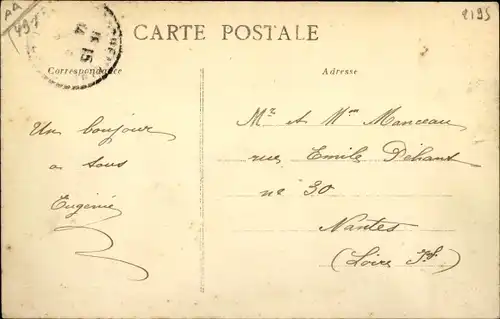 AA
491
2195
15 15
14
CARTE POSTALE
Correspondance
Adresse
Un bonjour
a tous
Eugénie
Mr et Mme Manceau
rue Emile Péhant
no 30
Nantes
(Loire If)